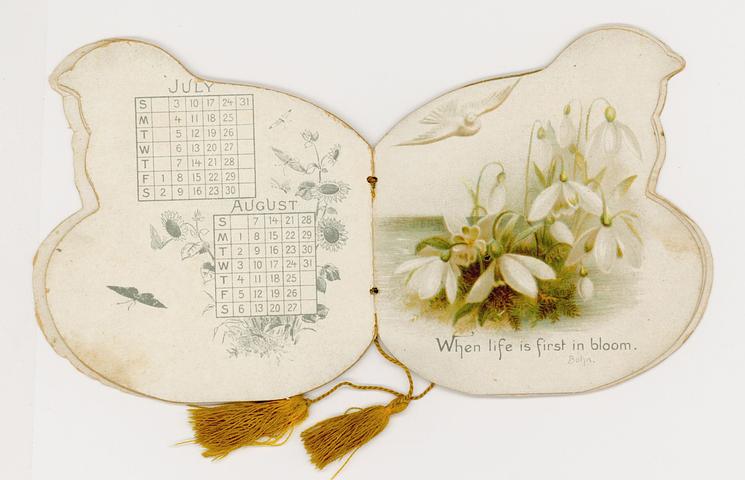 JULY
S 3 10 17 24 31
M 4 11 18 25
T 5 12 19 26
W 6 13 20 27
T 7 14 21 28
F 1 8 15 22 29
S 2 9 16 23 30
AUGUST
S 7 14 21 28
M 1 8 15 22 29
T 2 9 16 23 30
W 3 10 17 24 31
T 4 11 18 25
F 5 12 19 26
S 6 13 20 27
When life is first in bloom.
Bohn.